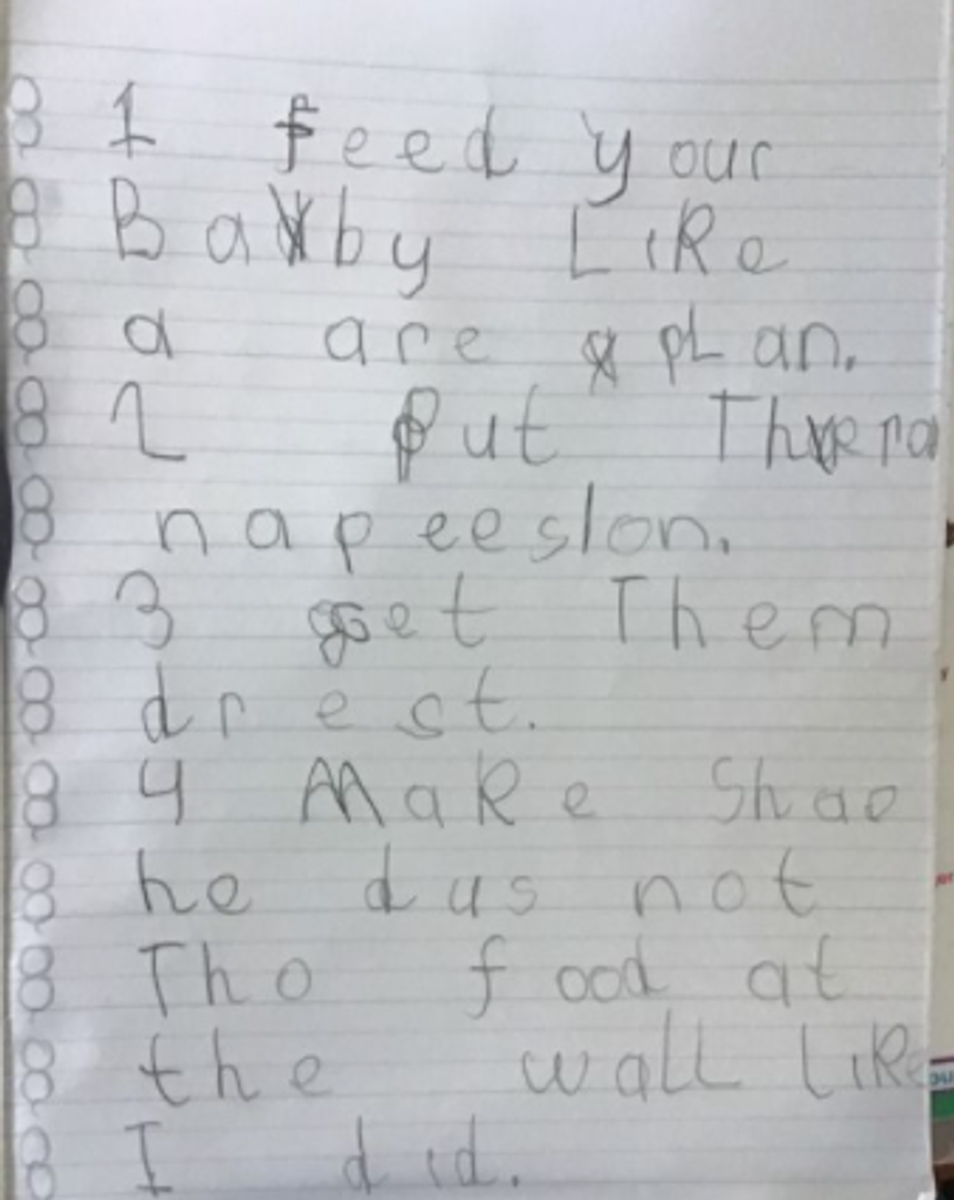 1 feed your
Baby Like
a are plan.
2 Put
napeeslon.
3 get Them
drest.
4 Make Shao
he dus not
Tho food at
the wall Like
I did.